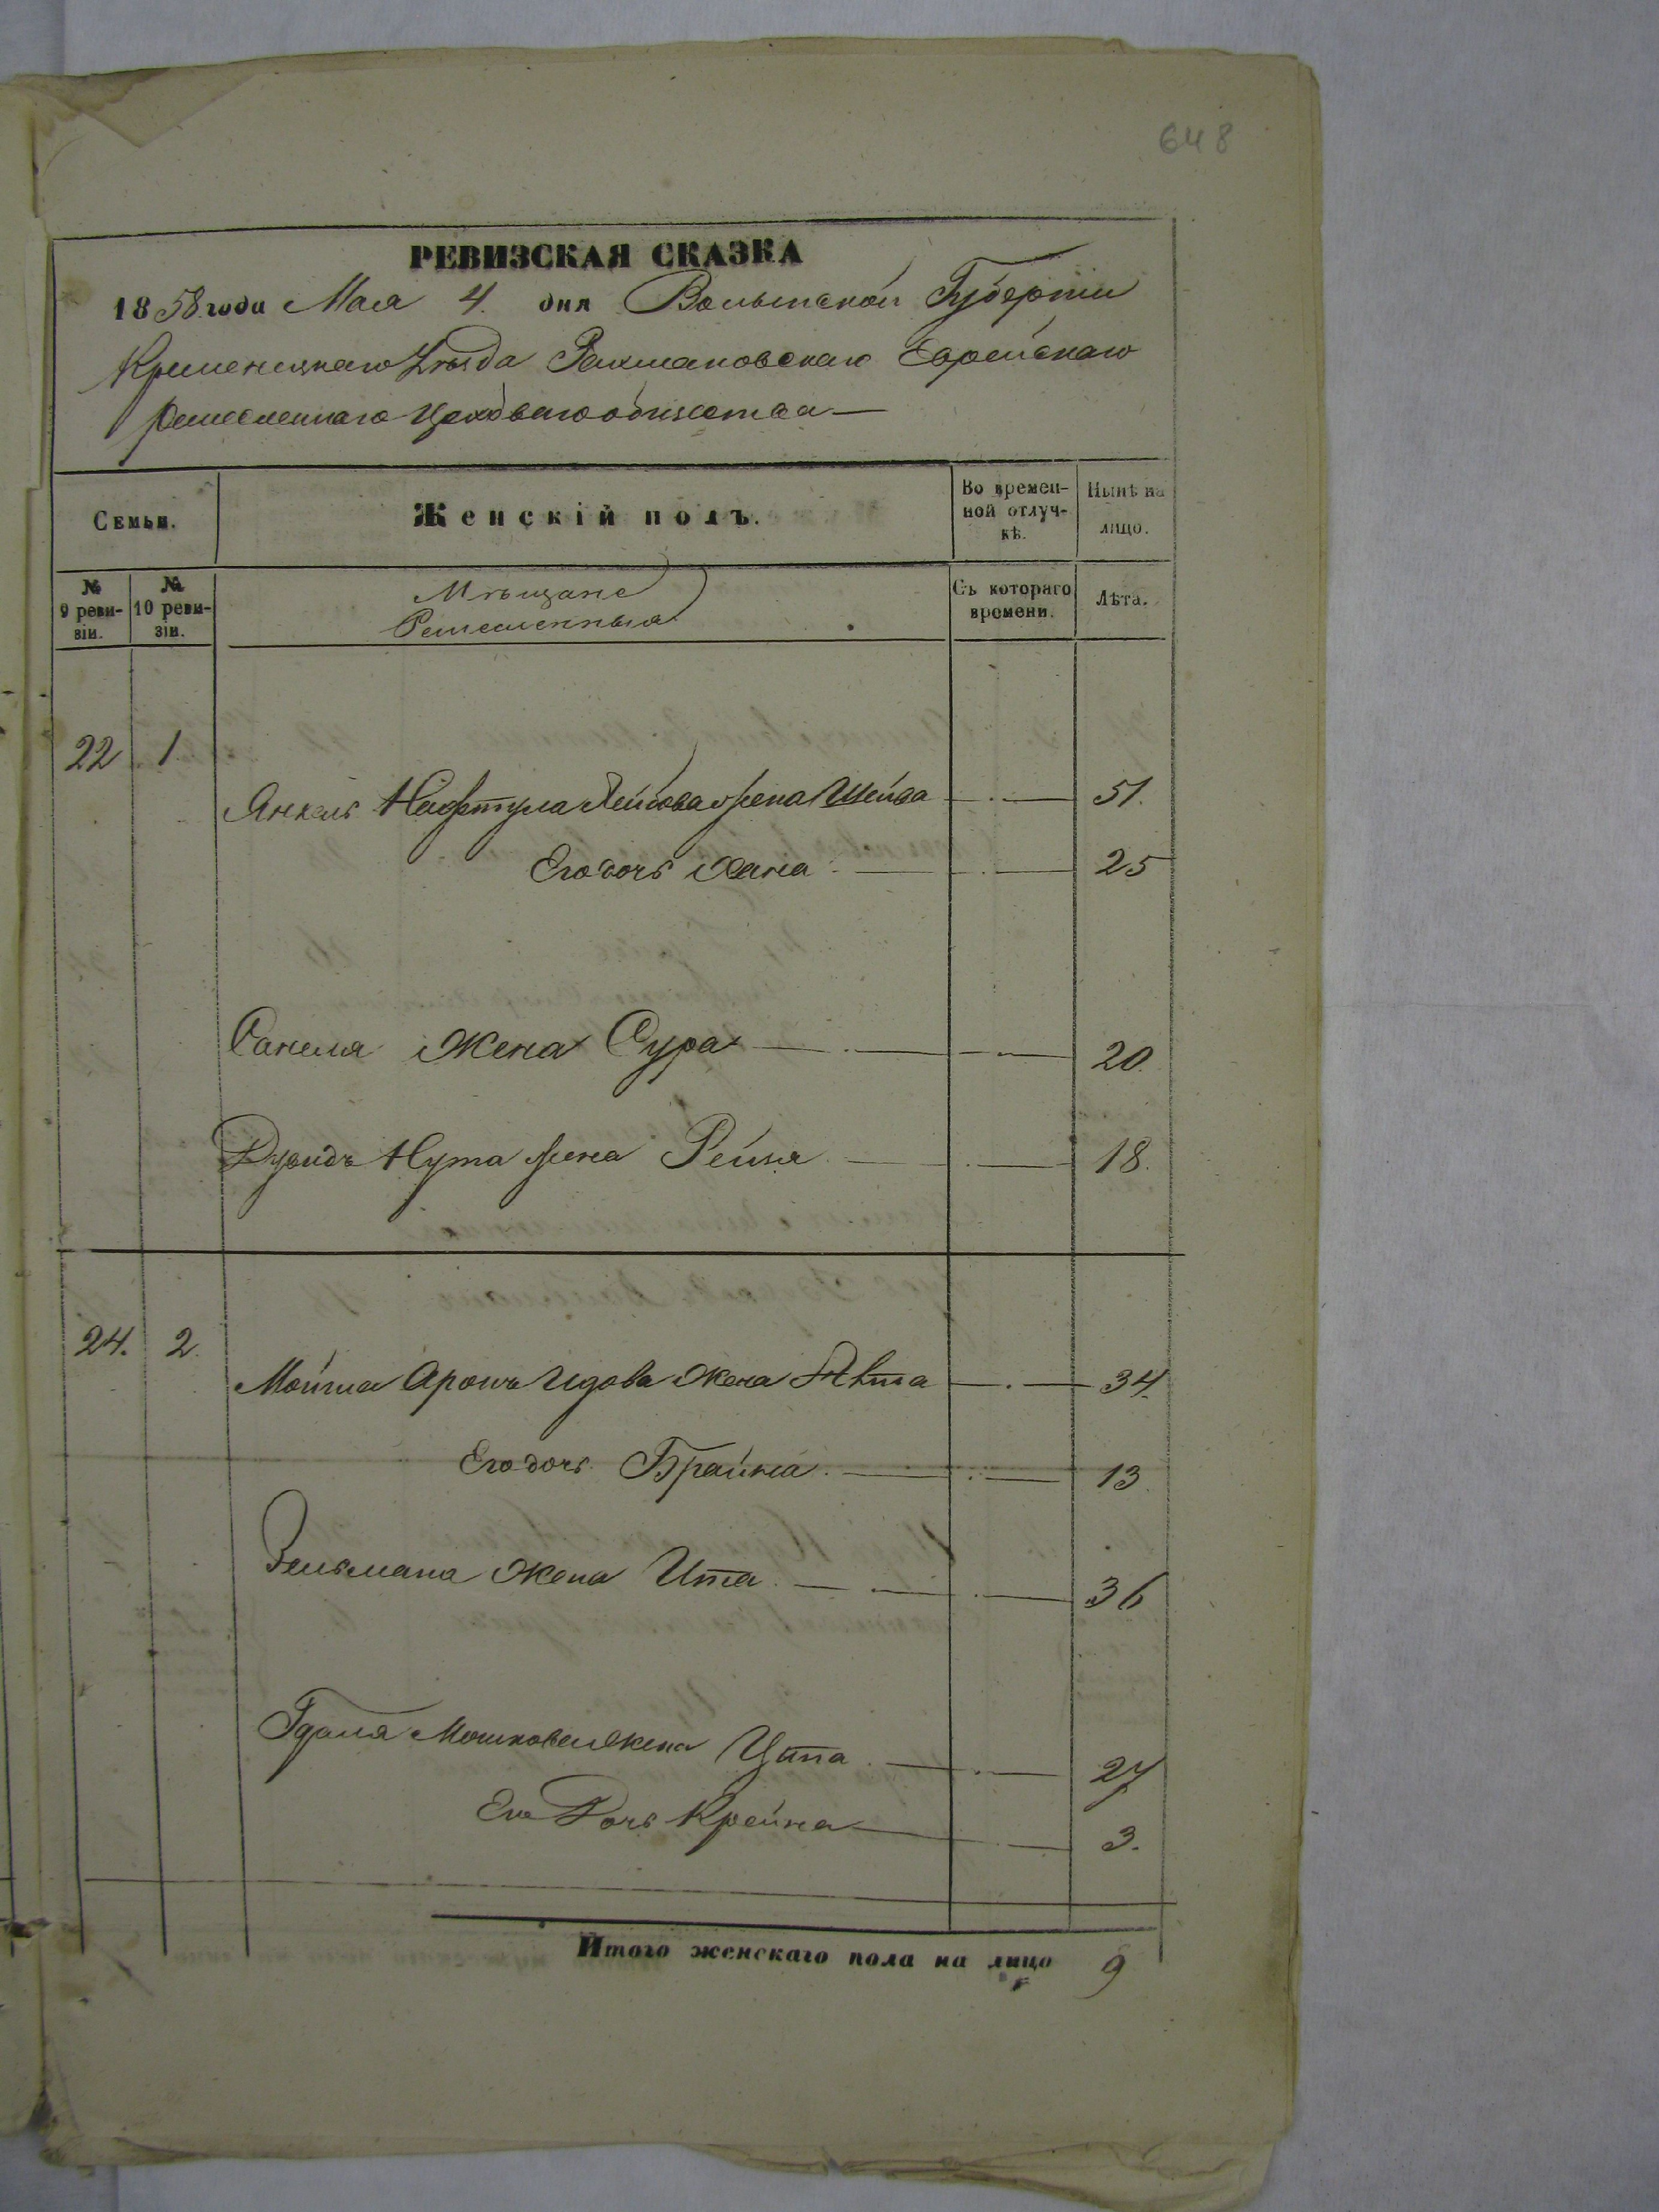 648
РЕВИЗСКАЯ СКАЗКА
1858 года Мая 4. дня Волынской Губерніи
Кременецкаго Уѣзда Рахмановскаго Еврейскаго
Ремесленнаго Цеховаго общества —
Семьи.
Женскій полъ.
Во времен-
ной отлуч-
кѣ.
Нынѣ на
лицо.
№
9 реви-
зіи.
№
10 реви-
зіи.
Мѣщане
Ремесленныя
Съ котораго
времени.
Лѣта.
22 1
Янкель Нафтула Лейбова жена Шейва — 51.
Его дочь Хана — 25
Санеля Жена Сура — 20.
Дувидъ Нута жена Рейзя — 18.
24. 2.
Мойша Аронъ Идова жена — 34.
Его дочь Брайна — 13.
Зельмана жена Ита — 36
Гдаля Мошкова жена — 27
Его Дочь Крейна — 3.
Итого женскаго пола на лицо 9